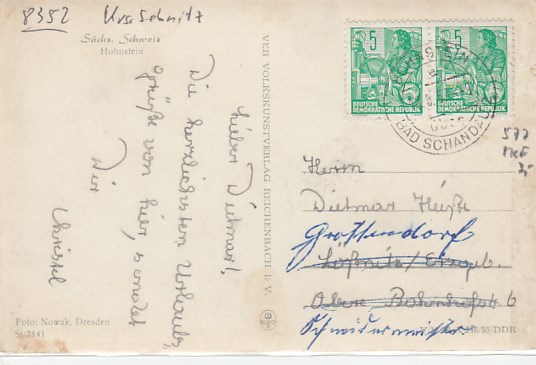 8352
Sächs. Schweiz
Hohnstein
Lieber Dietmar!
Die herzlichsten Urlaubs,
grüße von hier, sendet
Dir
Christel
Foto: Nowak, Dresden
VEB VOLKSKUNSTVERLAG REICHENBACH i. V.
5
DEUTSCHE
DEMOKRATISCHE REPUBLIK
5
DEUTSCHE
DEMOKRATISCHE REPUBLIK
BAD SCHANDAU
577
MeF
Herrn
Dietmar Heiße
Großendorf
Lößnitz/Erzgeb.
Obere Bahnhofstr. 6
Schneidermeister
/55/DDR